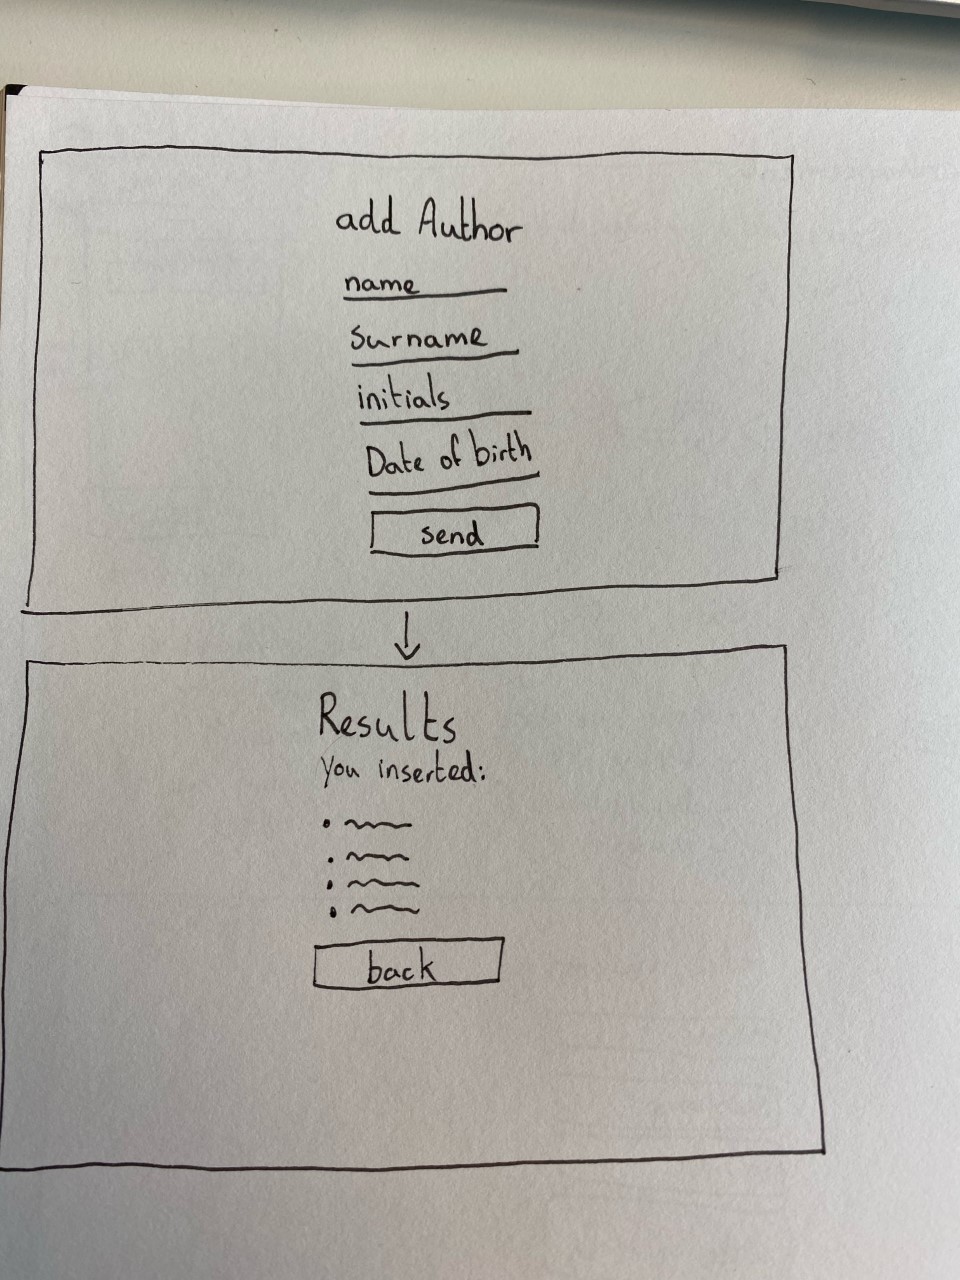 add Author
name
Surname
initials
Date of birth
send
Results
You inserted:
back